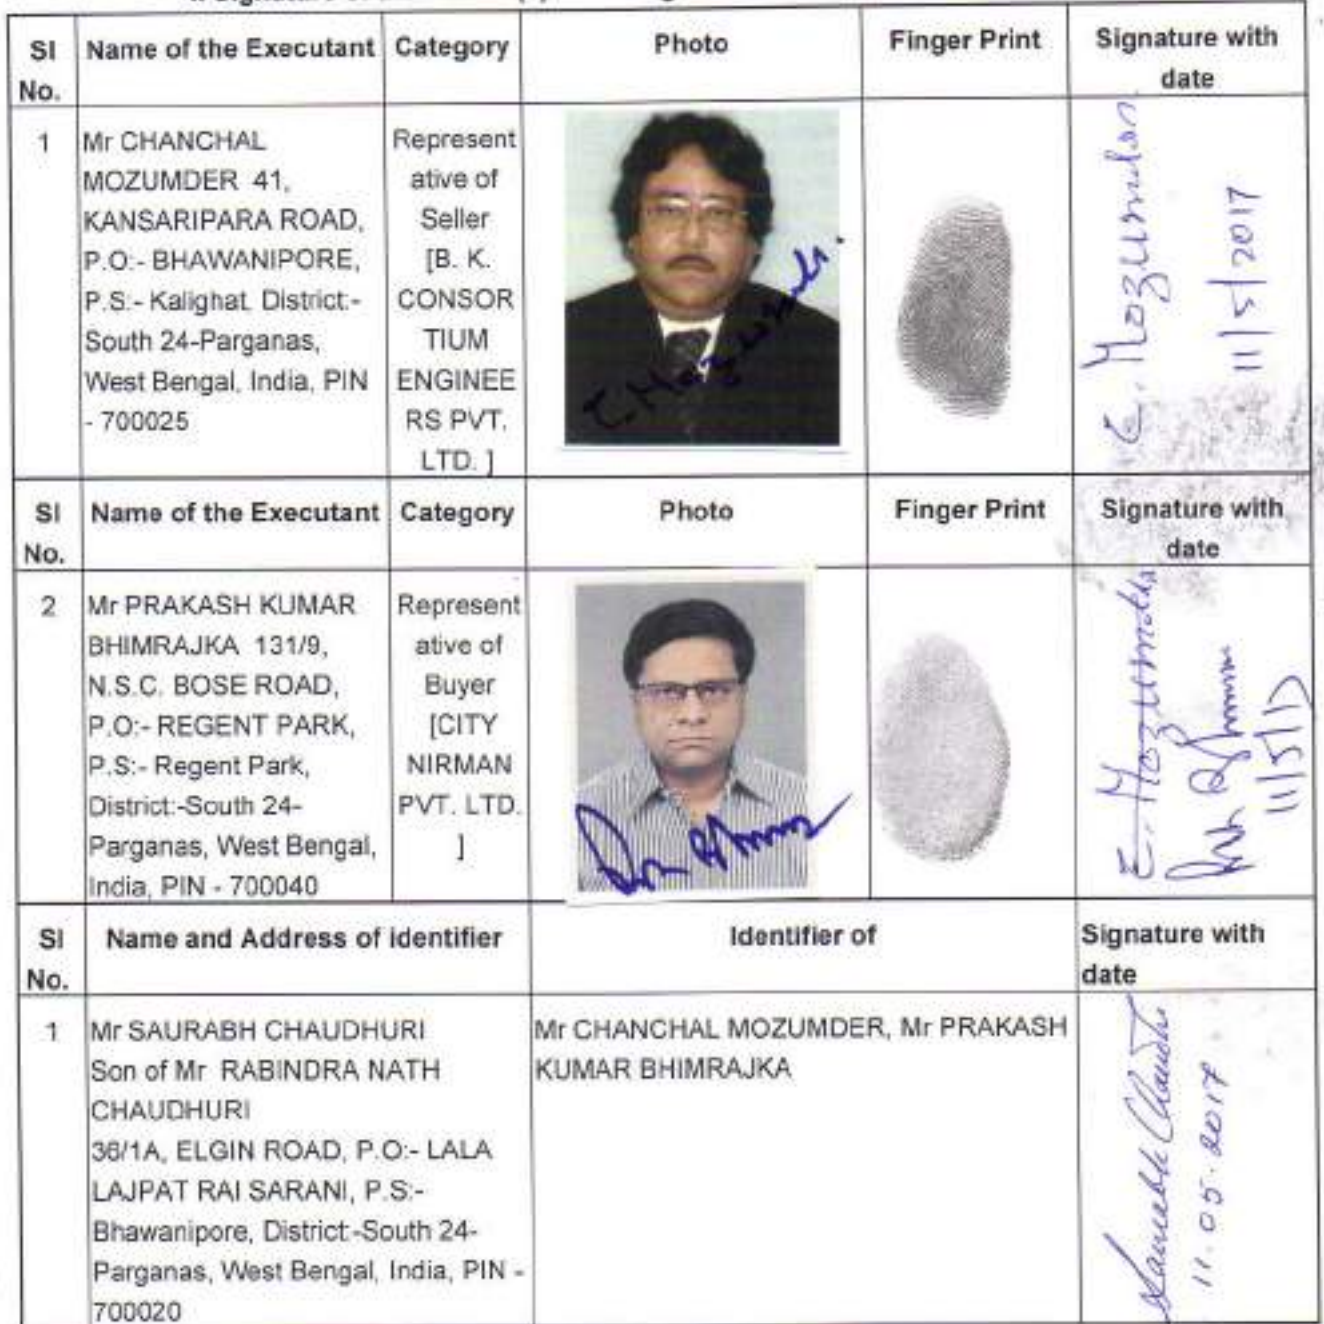 Signature of
SI No. Name of the Executant Category Photo Finger Print Signature with date
1
Mr CHANCHAL
MOZUMDER 41,
KANSARIPARA ROAD,
P.O:- BHAWANIPORE,
P.S:- Kalighat, District:-
South 24-Parganas,
West Bengal, India, PIN
- 700025
Represent
ative of
Seller
[B. K.
CONSOR
TIUM
ENGINEE
RS PVT.
LTD. ]
C. Mozumder
C. Mozumder
11/5/2017
SI No. Name of the Executant Category Photo Finger Print Signature with date
2
Mr PRAKASH KUMAR
BHIMRAJKA 131/9,
N.S.C. BOSE ROAD,
P.O:- REGENT PARK,
P.S:- Regent Park,
District:-South 24-
Parganas, West Bengal,
India, PIN - 700040
Represent
ative of
Buyer
[CITY
NIRMAN
PVT. LTD.
]
C. Mozumder
11/5/17
SI No. Name and Address of identifier Identifier of Signature with date
1
Mr SAURABH CHAUDHURI
Son of Mr RABINDRA NATH
CHAUDHURI
36/1A, ELGIN ROAD, P.O:- LALA
LAJPAT RAI SARANI, P.S:-
Bhawanipore, District:-South 24-
Parganas, West Bengal, India, PIN -
700020
Mr CHANCHAL MOZUMDER, Mr PRAKASH
KUMAR BHIMRAJKA
Saurabh Chaudhuri
11.05.2017